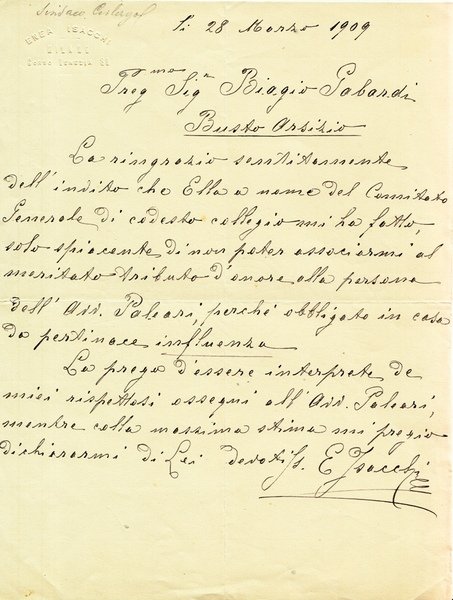 Sindaco
ENEA ISACCHI
MILANO
CORSO VENEZIA
li 28 Marzo 1909
Preg.mo Sig.r Biagio Gabardi
Busto Arsizio
La ringrazio sentitamente
dell'invito che Ella a nome del Comitato
Generale di codesto collegio mi ha fatto
solo spiacente di non poter associarmi al
meritato tributo d'onore alla persona
dell'Avv. Paleari, perché obbligato in casa
da pertinace influenza
La prego d'essere interprete de
miei rispettosi ossequi all'Avv. Paleari,
mentre colla massima stima mi pregio
dichiararmi di Lei devotiss. E Isacchi